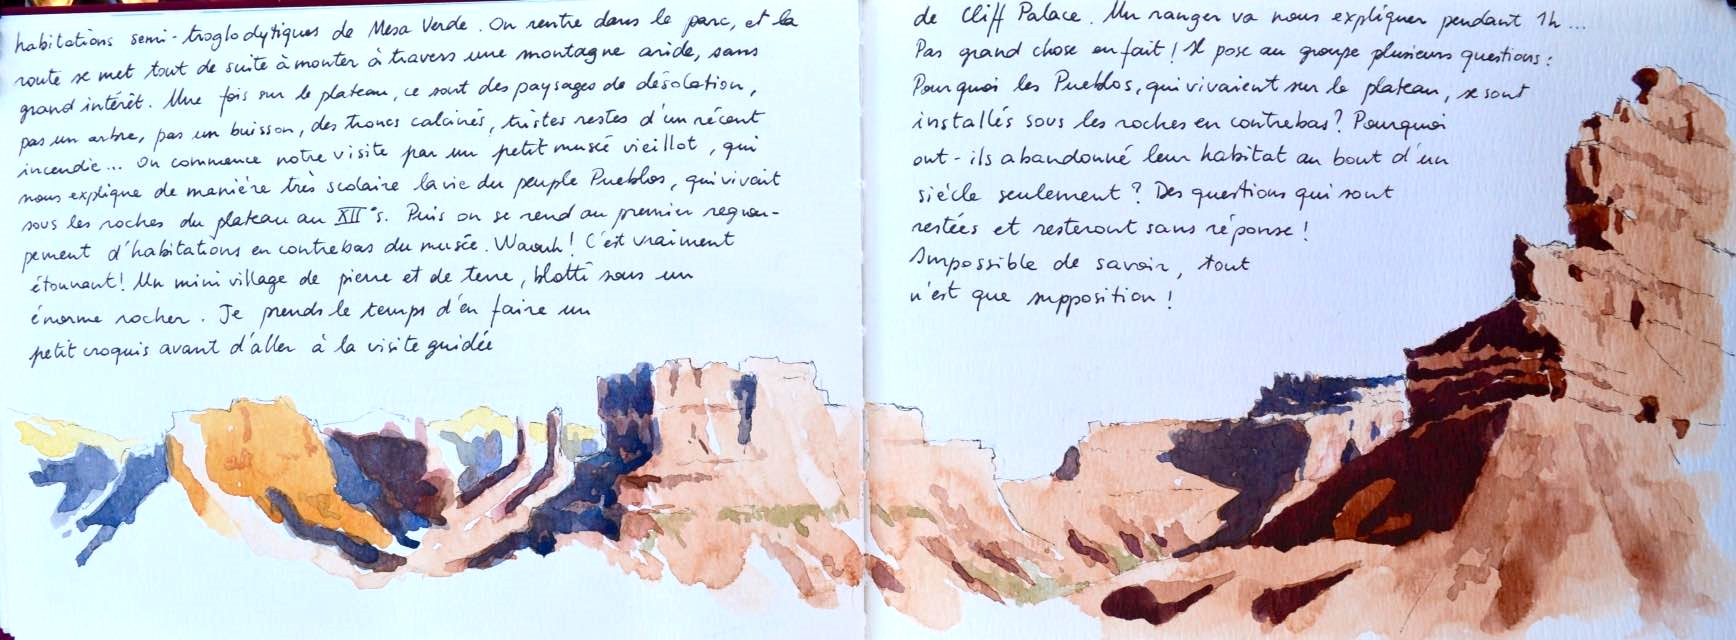 habitations semi-troglodytiques de Mesa Verde. On rentre dans le parc, et la
route se met tout de suite à monter à travers une montagne aride, sans
grand intérêt. Une fois sur le plateau, ce sont des paysages de désolation,
pas un arbre, pas un buisson, des troncs calcinés, tristes restes d'un récent
incendie... On commence notre visite par un petit musée vieillot, qui
nous explique de manière très scolaire la vie du peuple Pueblos, qui vivait
sous les roches du plateau au XII°s. Puis on se rend au premier regrou-
pement d'habitations en contrebas du musée. Waouh! C'est vraiment
étonnant! Un mini village de pierre et de terre, blotti sous un
énorme rocher. Je prends le temps d'en faire un
petit croquis avant d'aller à la visite guidée
de Cliff Palace. Un ranger va nous expliquer pendant 1h...
Pas grand chose en fait! Il pose au groupe plusieurs questions:
Pourquoi les Pueblos, qui vivaient sur le plateau, se sont
installés sous les roches en contrebas? Pourquoi
ont-ils abandonné leur habitat au bout d'un
siècle seulement? Des questions qui sont
restées et resteront sans réponse!
Impossible de savoir, tout
n'est que supposition!